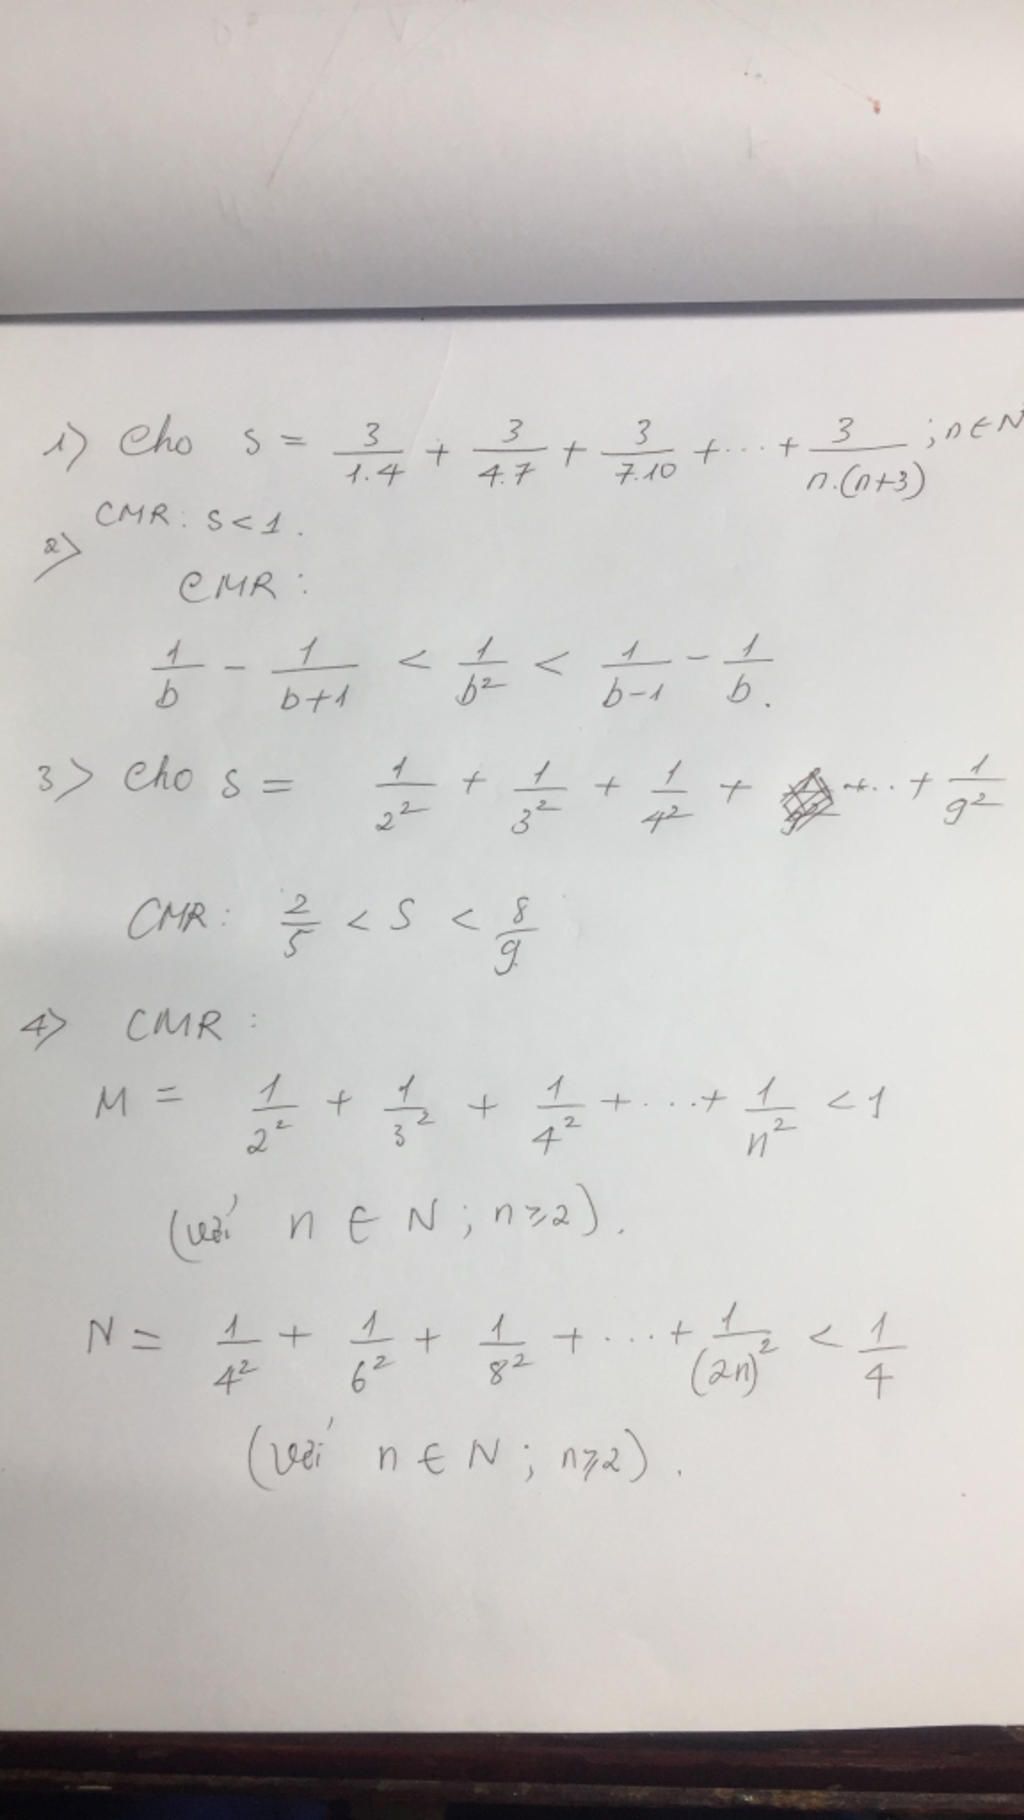 1) Cho S = 3/1.4 + 3/4.7 + 3/7.10 + ... + 3/n.(n+3) ; n ∈ N
CMR: S < 1.
2)
CMR:
1/b - 1/b+1 < 1/b² < 1/b-1 - 1/b.
3) Cho S = 1/2² + 1/3² + 1/4² + +.. + 1/9²
CMR: 2/5 < S < 8/9
4) CMR:
M = 1/2² + 1/3² + 1/4² + ... + 1/n² < 1
(với n ∈ N ; n ⩾ 2).
N = 1/4² + 1/6² + 1/8² + ... + 1/(2n)² < 1/4
(với n ∈ N ; n ⩾ 2).